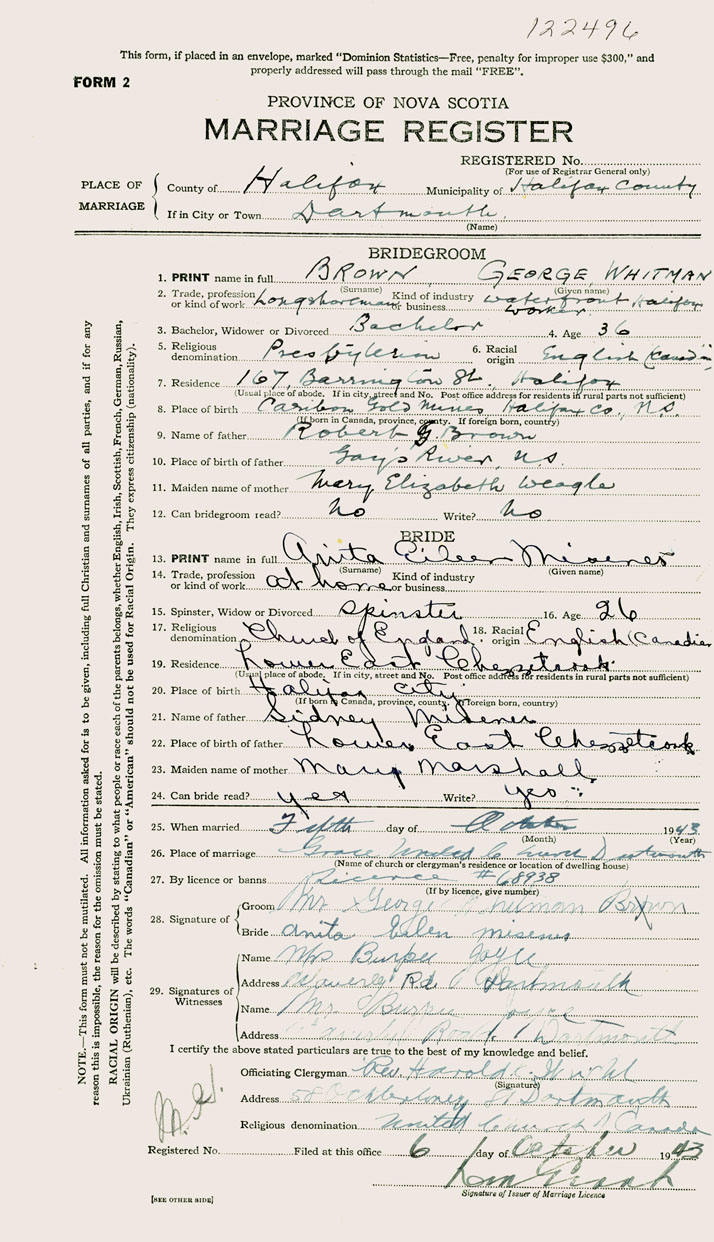 122496
This form, if placed in an envelope, marked "Dominion Statistics—Free, penalty for improper use $300," and
properly addressed will pass through the mail "FREE".
FORM 2
PROVINCE OF NOVA SCOTIA
MARRIAGE REGISTER
REGISTERED No.
(For use of Registrar General only)
PLACE OF MARRIAGE
County of Halifax Municipality of Halifax County
If in City or Town Dartmouth.
(Name)
BRIDEGROOM
1. PRINT name in full BROWN GEORGE, WHITMAN
(Surname) (Given name)
2. Trade, profession or kind of work Longshoreman Kind of industry or business waterfront Halifax worker.
3. Bachelor, Widower or Divorced Bachelor 4. Age 36
5. Religious denomination Presbyterian 6. Racial origin English (Canadi
7. Residence 167, Barrington St., Halifax
(Usual place of abode. If in city, street and No. Post office address for residents in rural parts not sufficient)
8. Place of birth Caribou Gold Mines Halifax Co., N.S.
(If born in Canada, province, county. If foreign born, country)
9. Name of father Robert G. Brown
10. Place of birth of father Gay's River, N.S.
11. Maiden name of mother Mary Elizabeth Weagle
12. Can bridegroom read? No Write? No
BRIDE
13. PRINT name in full Anita Eileen Misener
(Surname) (Given name)
14. Trade, profession or kind of work at home Kind of industry or business
15. Spinster, Widow or Divorced Spinster 16. Age 26
17. Religious denomination Church of England. 18. Racial origin English (Canadian
19. Residence Lower East Chezzetcook
(Usual place of abode. If in city, street and No. Post office address for residents in rural parts not sufficient)
20. Place of birth Halifax City
(If born in Canada, province, county. If foreign born, country)
21. Name of father Sidney Misener
22. Place of birth of father Lower East Chezzetcook
23. Maiden name of mother Mary Marshall
24. Can bride read? yes Write? yes
25. When married Fifth day of October 1943
(Month) (Year)
26. Place of marriage Grace United Church Dartmouth
(Name of church or clergyman's residence or location of dwelling house)
27. By licence or banns Licence #68938
(If by licence, give number)
28. Signature of
Groom Mr George Whitman Brown
Bride Anita Eileen Misener
29. Signatures of Witnesses
Name Mrs Burpee
Address Waverley Rd Dartmouth
Name Mr. Burpee
Address Waverley Road, Dartmouth
I certify the above stated particulars are true to the best of my knowledge and belief.
Officiating Clergyman Rev Harold
(Signature)
Address 58 Ochterloney St Dartmouth
Religious denomination United Church of Canada
Registered No. Filed at this office 6 day of October 1943
Signature of Issuer of Marriage Licence
[SEE OTHER SIDE]
NOTE.—This form must not be mutilated. All information asked for is to be given, including full Christian and surnames of all parties, and if for any
reason this is impossible, the reason for the omission must be stated.
RACIAL ORIGIN will be described by stating to what people or race each of the parents belongs, whether English, Irish, Scottish, French, German, Russian,
Ukrainian (Ruthenian), etc. The words "Canadian" or "American" should not be used for Racial Origin. They express citizenship (nationality).